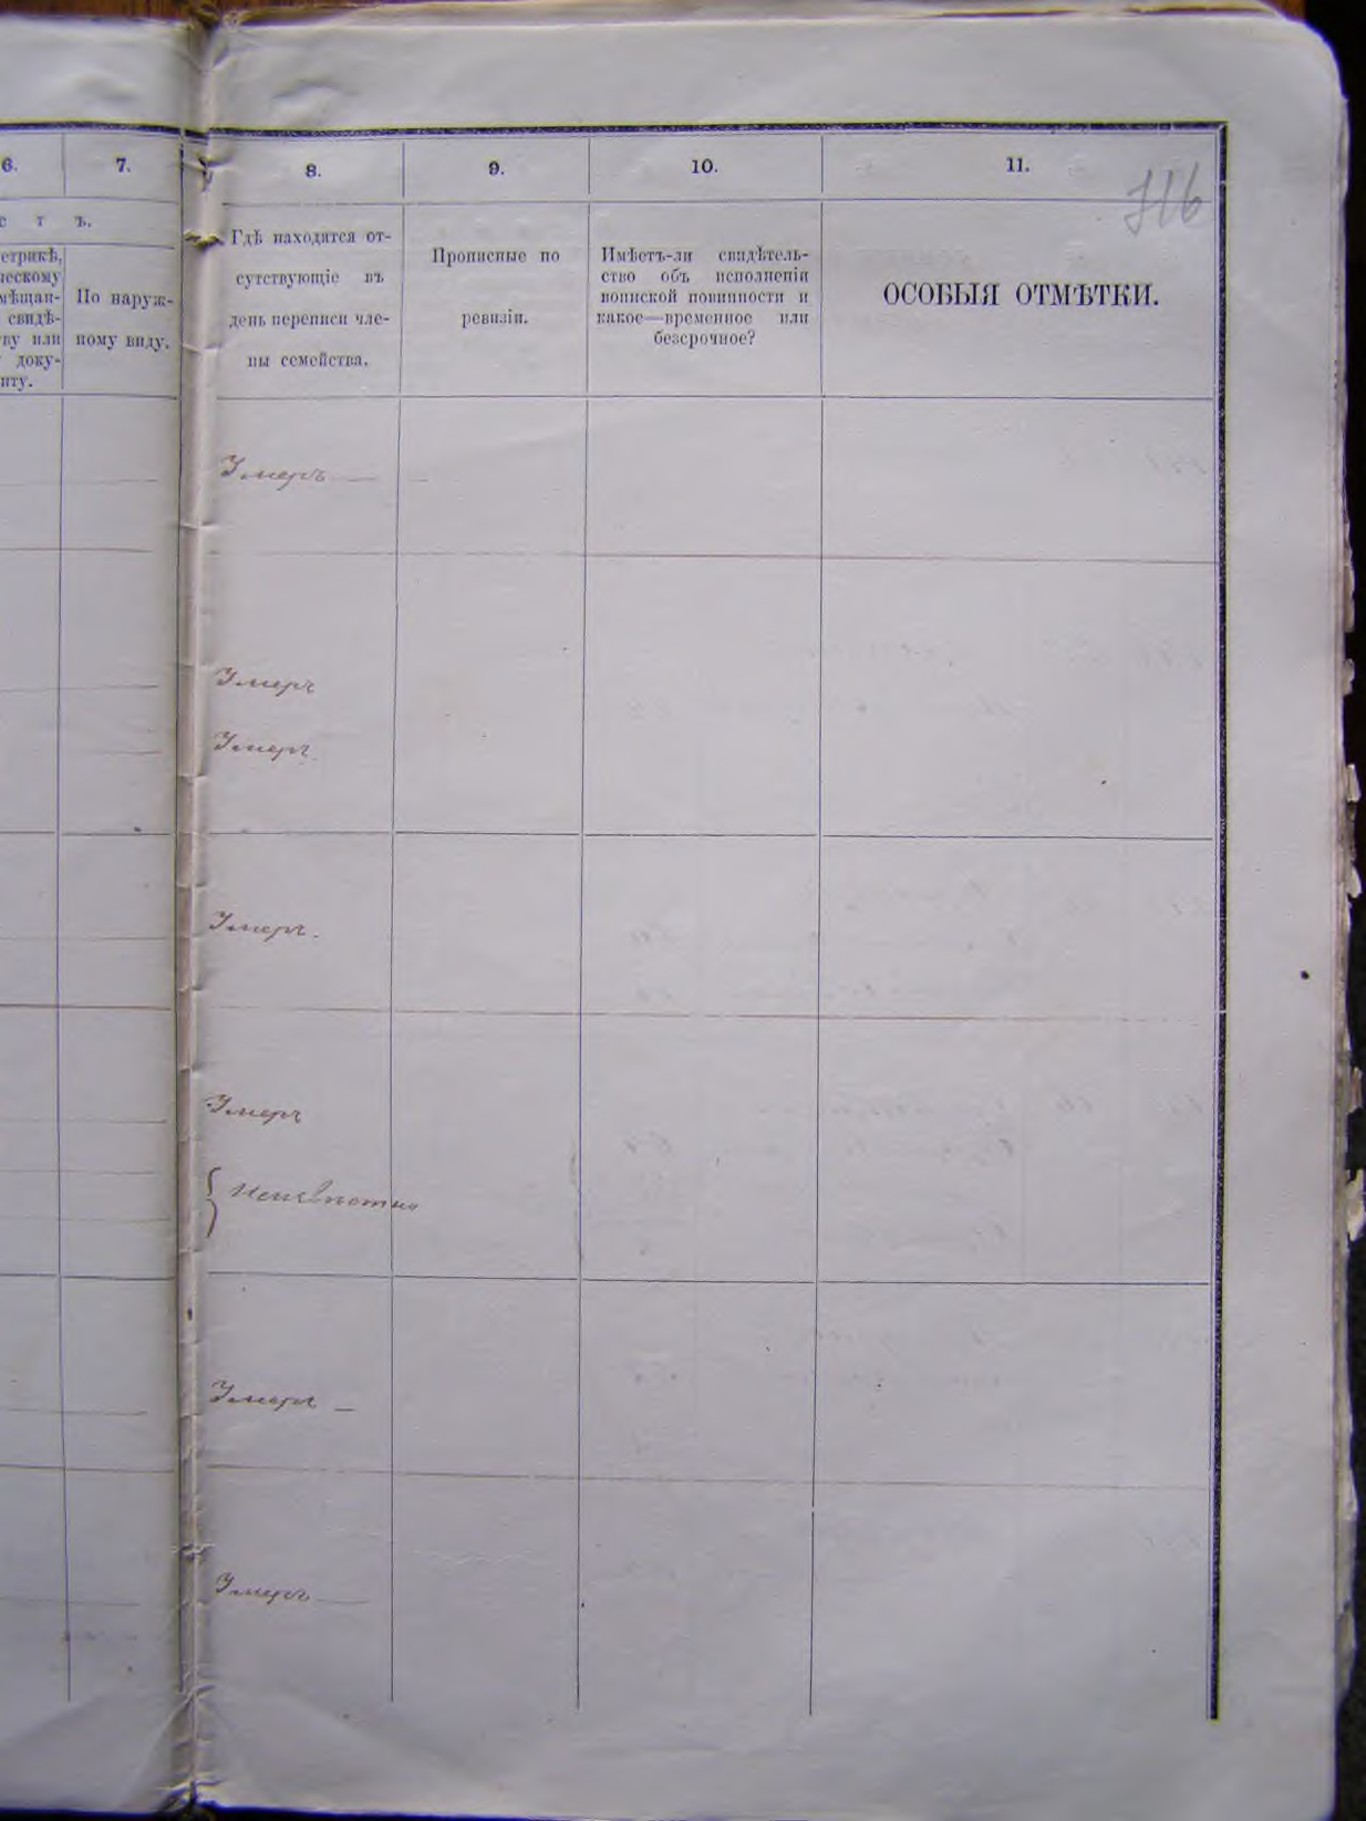 6.
7.
8.
9.
10.
11.
с т ъ.
етрикѣ,
ческому
мѣщан-
свидѣ-
ву или
доку-
нту.
По наруж-
ному виду.
Гдѣ находятся от-
сутствующіе въ
день переписи чле-
ны семейства.
Прописные по
ревизіи.
Имѣетъ-ли свидѣтель-
ство объ исполненіи
воинской повинности и
какое—временное или
безсрочное?
ОСОБЫЯ ОТМѢТКИ.
716
Умеръ —
Умеръ
Умеръ
Умеръ.
Умеръ
Неизвѣстно
Умеръ —
Умеръ —